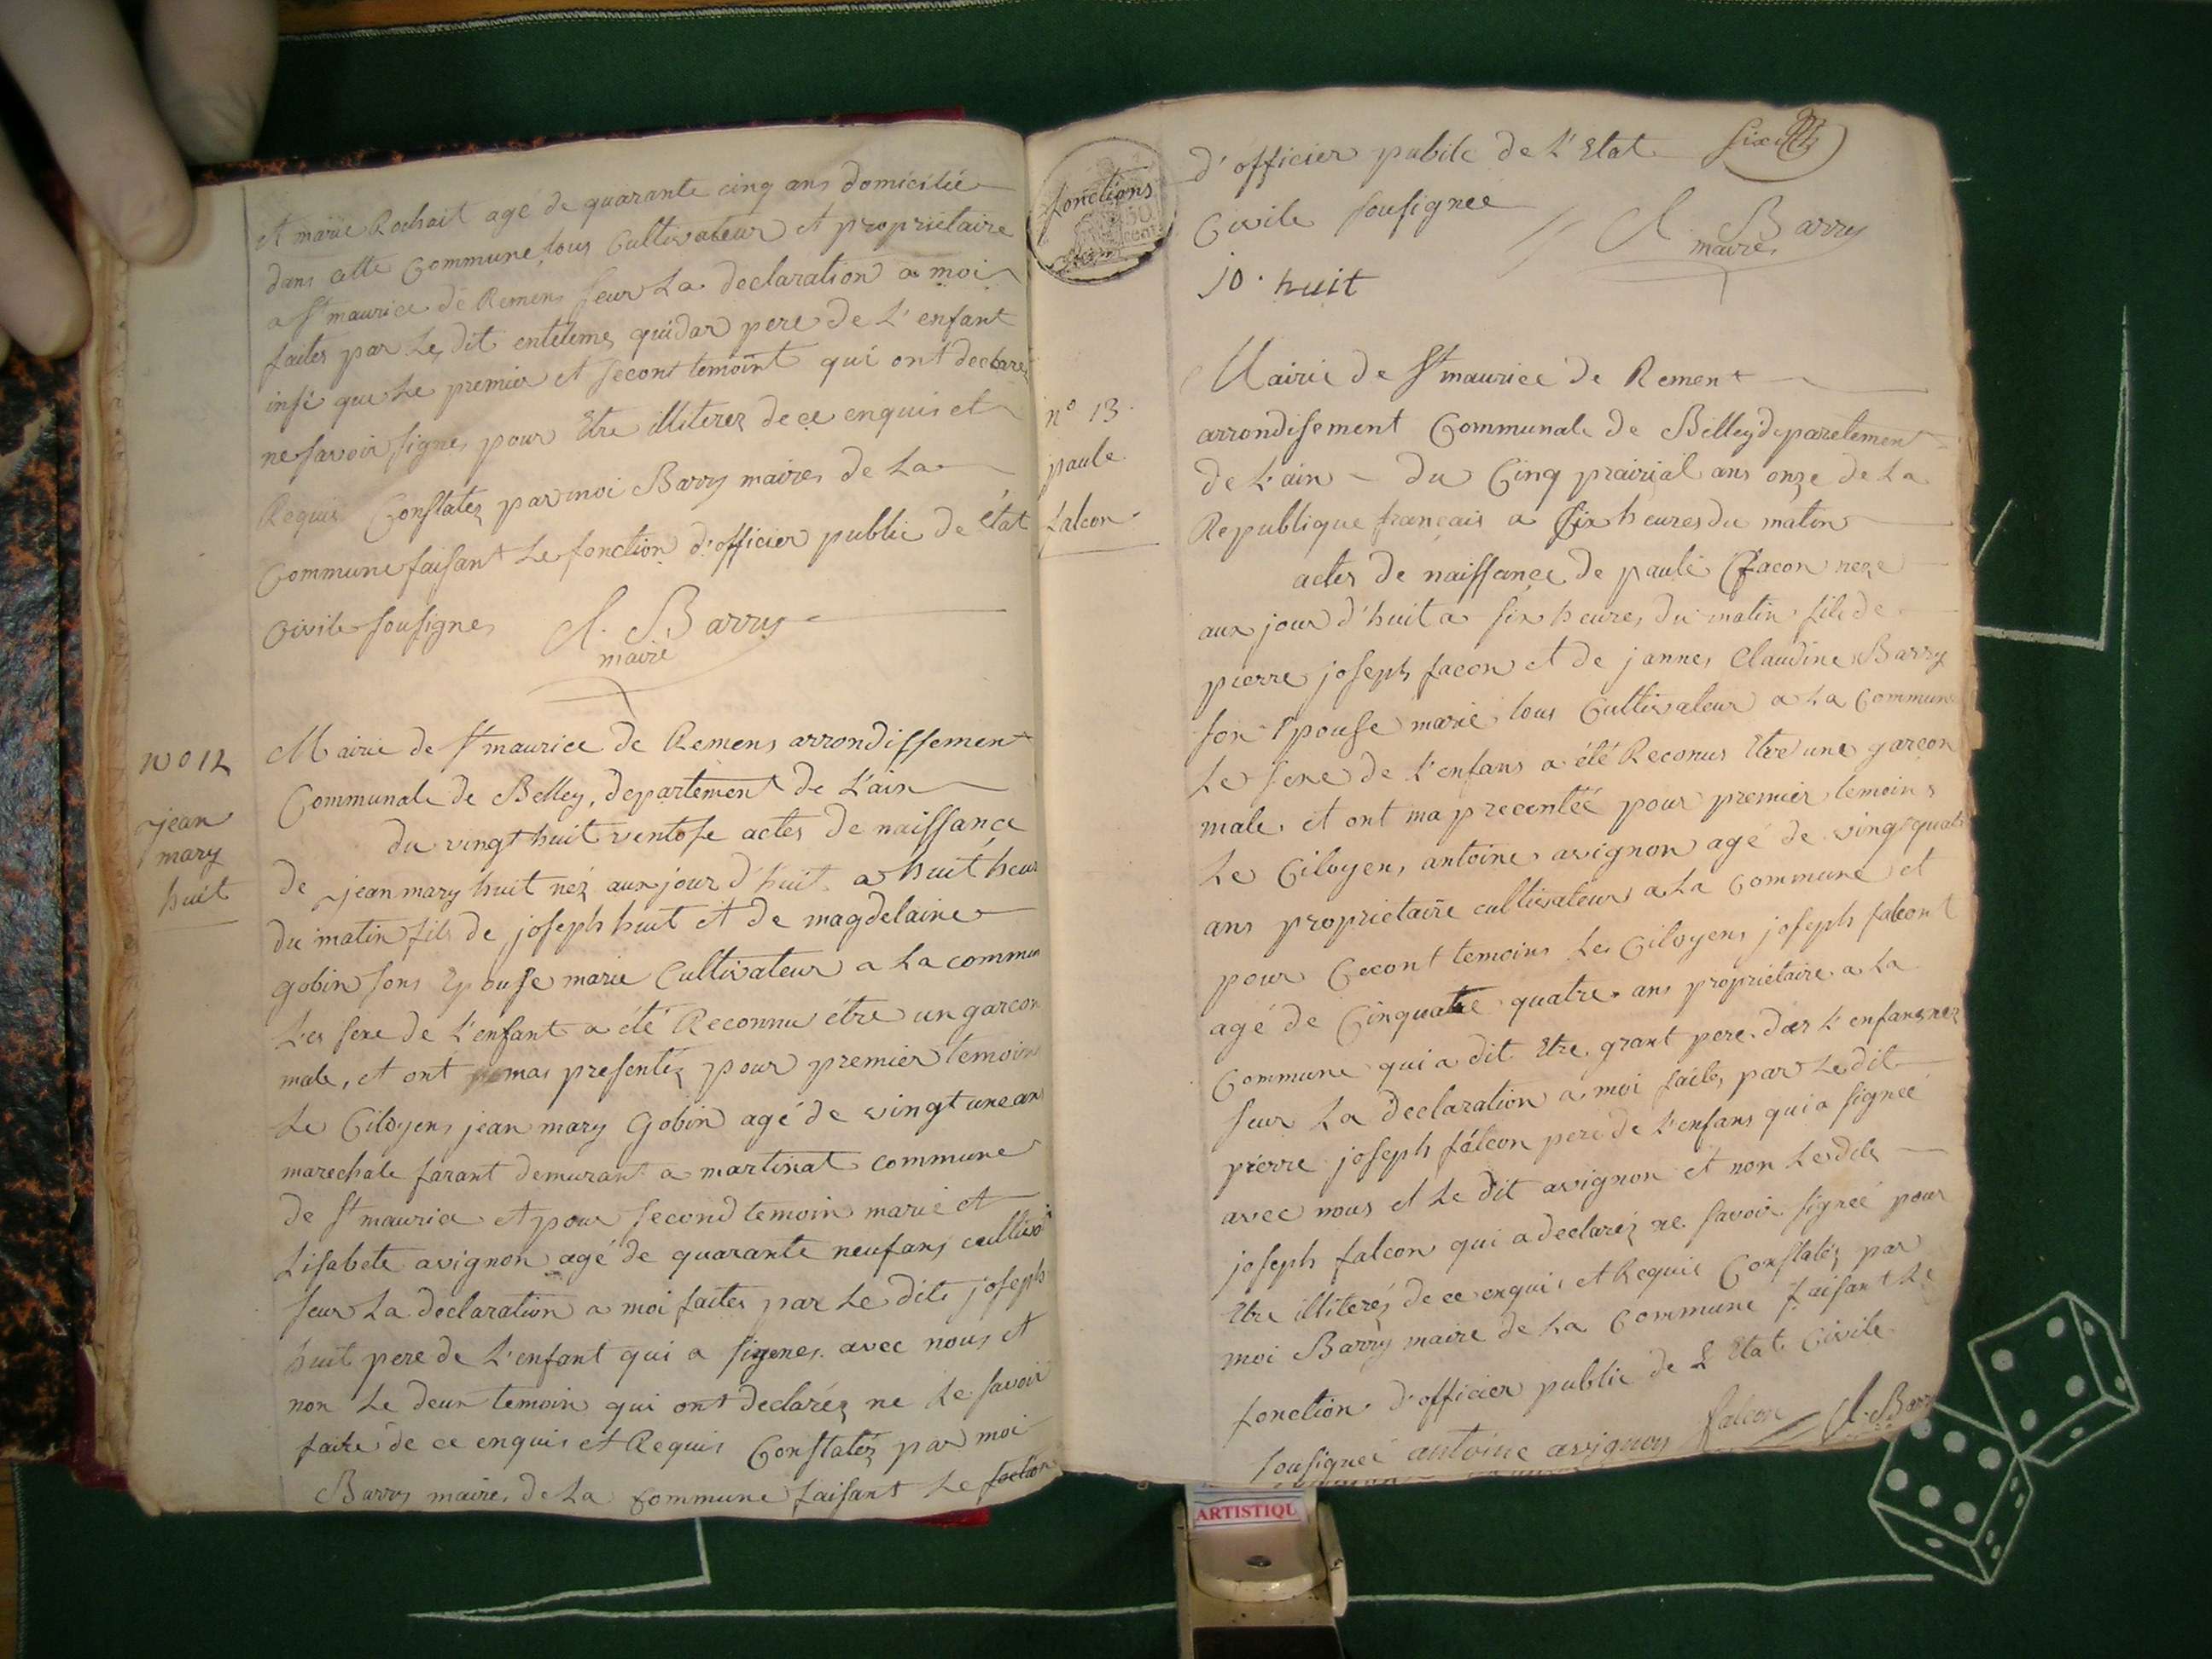 et marie Rochait agé de quarante cinq ans domicilié
dans cette Commune tous Cultivateur et propriétaire
a St maurice de Remens seur La declaration a moi
faites par Le dit entelemes quidar pere de L'enfant
insi que Le premier et second temoint qui ont declarez
ne savoir signes pour Etre illiterez de ce enquis et
Requis Constatez par moi Barry maires de La
Commune faisant Le fonction d'officier public de état
Civile sousignes Cl. Barry
maire
no 12
jean
mary
huit
Mairie de St maurice de Remens arrondissement
Communale de Belley, departement de L'ain
du vingt huit ventose actes de naissance
de jean mary huit néz aux jour d'huit a huit heur
du matin fils de joseph huit et de magdelaine
gobin sons Epouse marie Cultivateur a La commun
Les sexe de L'enfant a été Reconnu être un garcon
male, et ont mas presentéz pour premier temoins
Le Citoyens jean mary Gobin agé de vingt une ans
marechale farant demurant a martinat commune
de St maurice et pour second temoin marie et
Lisabete avignon agé de quarante neuf ans cultiva
seur La declaration a moi faites par Le dits joseph
huit pere de L'enfant qui a signes avec nous et
non Le deux temoin qui ont declaréz ne Le savoir
faire de ce enquis et Requis Constatéz par moi
Barry maires de La Commune faisant Le foction
fonctions
50
cent
d'officier pubilc de L'Etat
Civile sousignee Cl. Barry
maires
jo. huit
no 13
paule
falcon
Mairie de St maurice de Rement
arrondisement Communale de Belley departement
de L'ain - du Cinq prairial ans onze de La
Republique français a six heures du matin
actes de naissance de paule facon neze
aux jour d'huit a six heures du matin fils de
pierre joseph facon et de jannes Claudine Barry
son Epouse marie tous Cultivateur a La Commune
Le sexe de L'enfans a été Reconus Etre une garcon
male. et ont ma precentéé pour premier temoins
Le Citoyens antoine avignon agé de vingt quatr
ans proprietaire cultivateur a La Commune et
pour Cecont temoins Les Citoyens joseph falcont
agé de Cinquate quatre ans proprietaire a La
Commune qui a dit Etre grant pere der L'enfans nez
seur La declaration a moi faites par Le dit
pierre joseph fálcon pere de L'enfans qui a signeé
avec nous et Le dit avignon et non Ledits
joseph falcon qui a declaréz ne savoir signeé pour
Etre illiteréz de ce enquis et Requis Constatéz par
moi Barry maire de La Commune faisant Le
fonction d'officier public de L'Etat Civile
sousigneé antoine avignon falcon Cl. Barr
ARTISTIQU